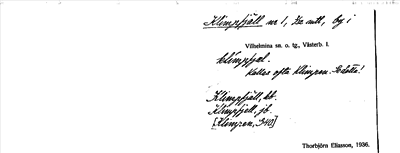 Klimpfjäll nr 1, 1/32 mtl, by i
Vilhelmina sn. o. tg., Västerb. l.
klímpfjæl.
Kallas ofta Klimpen.
Klimpfjäll, kb.
Klimpfjell, jb.
[Klimpen, 340]
Thorbjörn Eliasson, 1936.